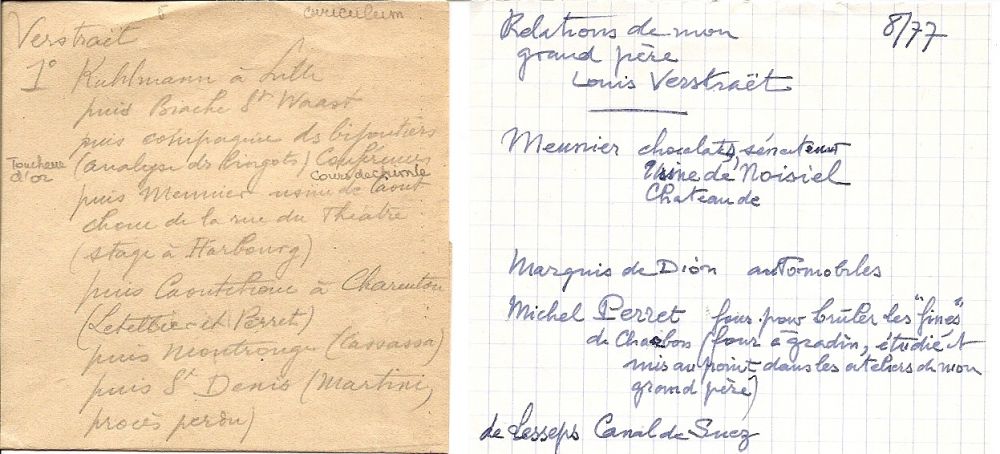 curiculum
Verstraët
1° Kuhlmann à Lille
puis Brache St Waast
puis compagnie ds bijoutiers
Toucheur
d'or
(analyse ds lingots) Conférences
Cours de chimie
puis Meunier usine de Caout
chouc de la rue du Théâtre
(stage à Harbourg)
puis Caoutchouc à Charenton
(Letellier et Perret)
puis Montrouge (Cassassa)
puis St Denis (Martini,
procès perdu)
Relations de mon
grand père
Louis Verstraët
8/77
Meunier chocolats, sénateur
Usine de Noisiel
Chateau de
Marquis de Dion automobiles
Michel Perret four pour brûler les "fines"
de Charbon (four à gradin, étudié et
mis au point dans les ateliers de mon
grand père)
de Lesseps Canal de Suez